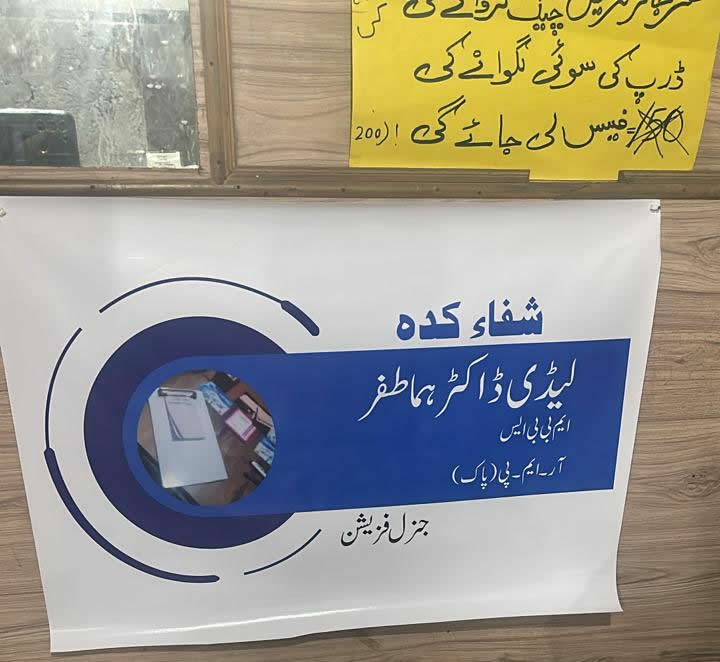 چیک کروانے کی
ڈرپ کی سوئی لگوانے کی
فیس لی جائے گی ! (200
شفاء کدہ
لیڈی ڈاکٹر ہما ظفر
ایم بی بی ایس
آر۔ایم۔پی (پاک)
جنرل فزیشن